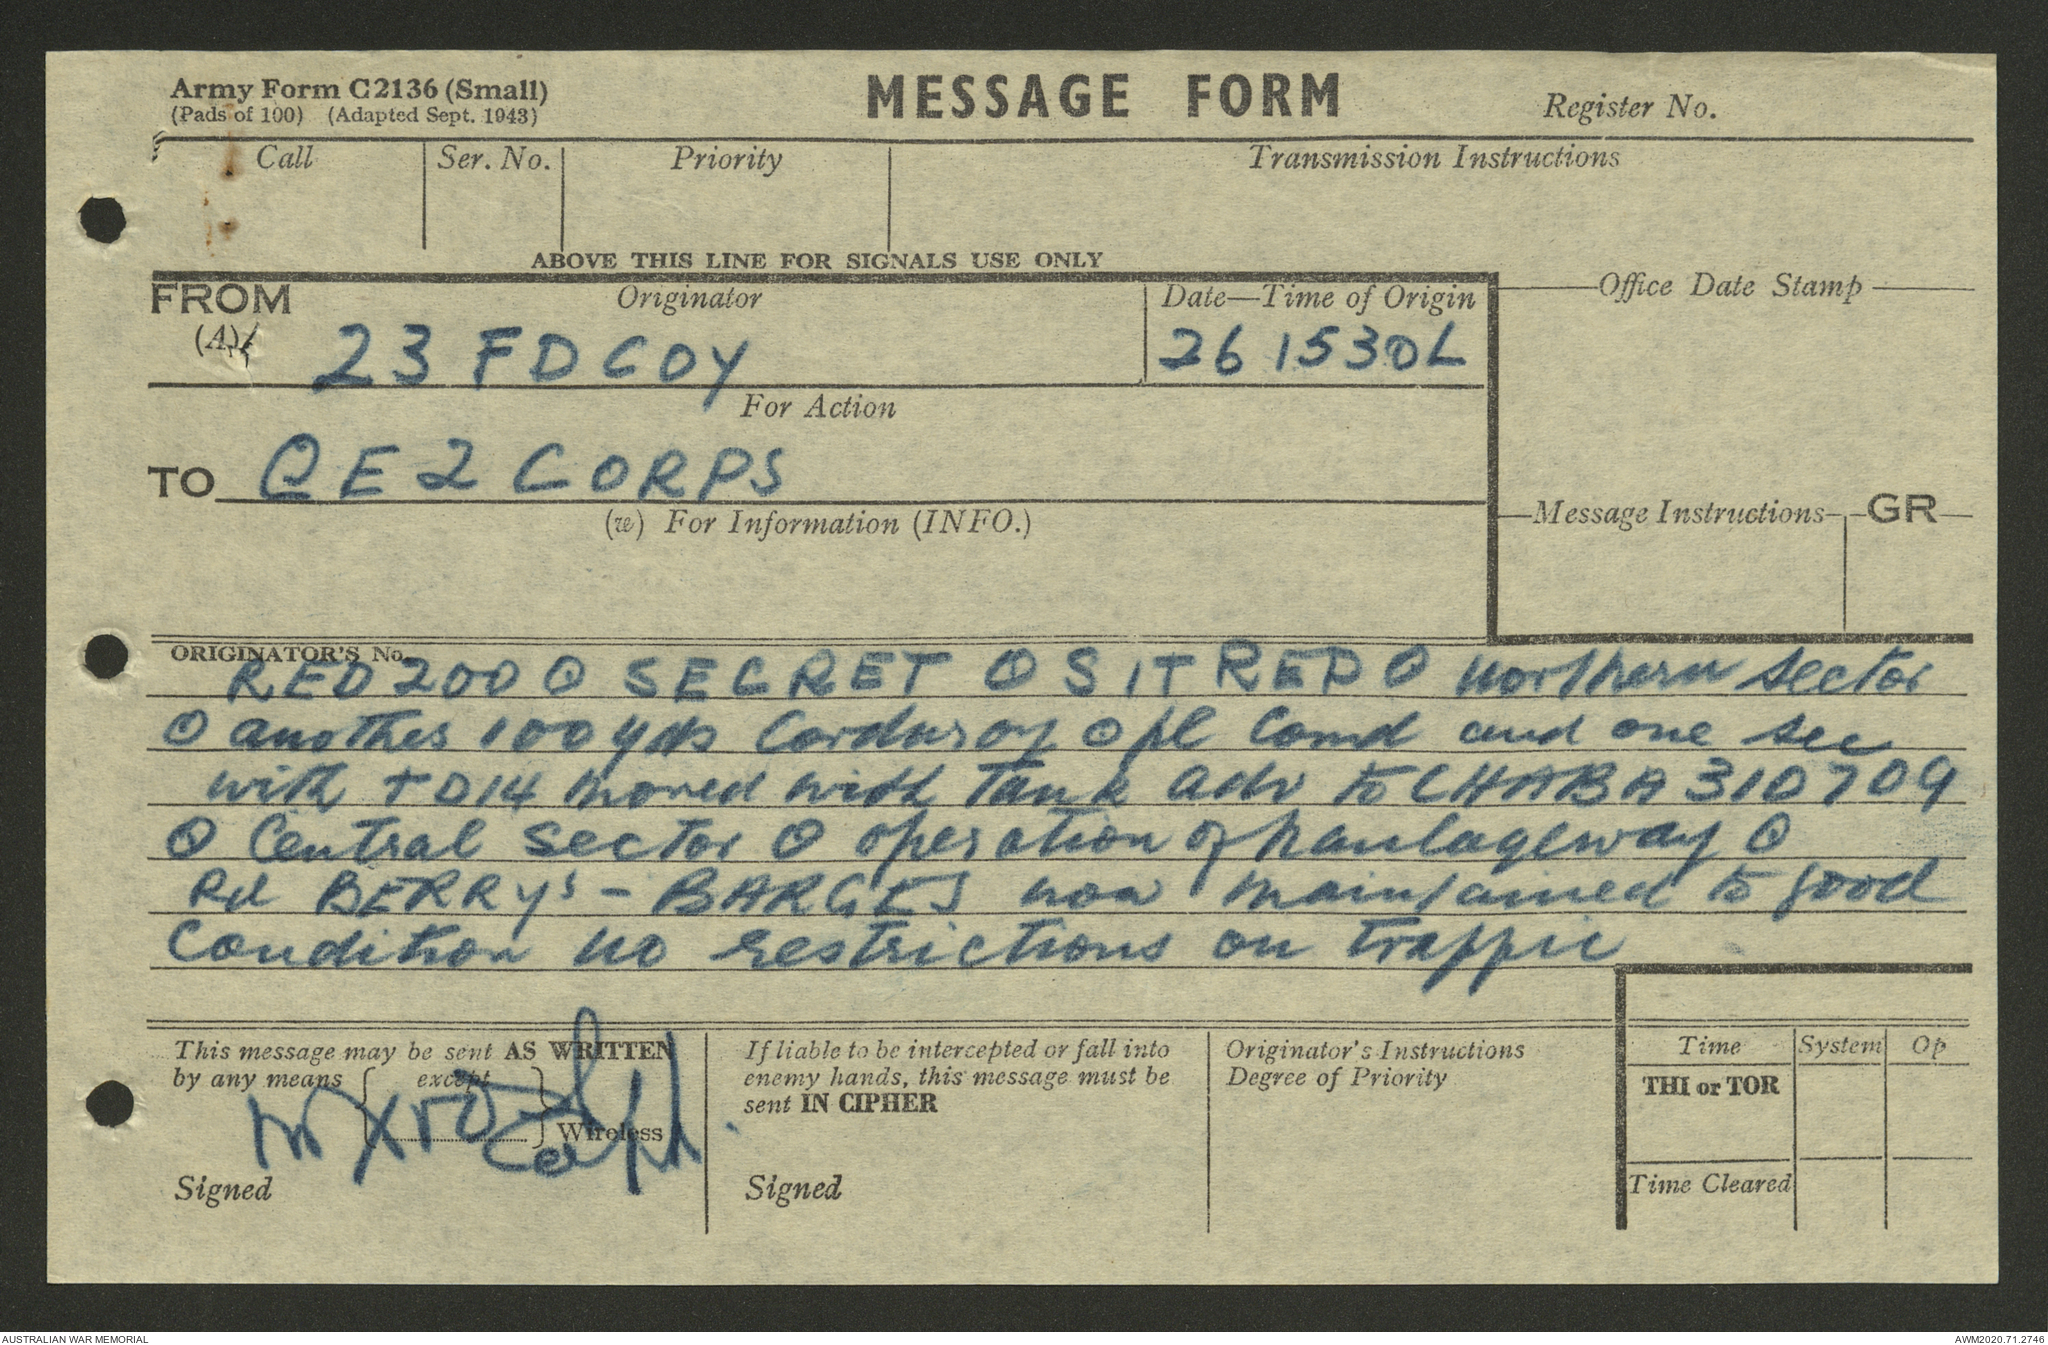 Army Form C2136 (Small)
(Pads of 100) (Adapted Sept. 1943)
MESSAGE FORM
Register No.
Call
Ser. No.
Priority
Transmission Instructions
ABOVE THIS LINE FOR SIGNALS USE ONLY
FROM
(A)
Originator
Date—Time of Origin
Office Date Stamp
23 FD COY
26 1530L
For Action
TO CE 2 CORPS
(w) For Information (INFO.)
Message Instructions
GR
ORIGINATOR'S No.
RED 200 ⊙ SECRET ⊙ SITREP ⊙ northern sector
⊙ another 100 yds corduroy ⊙ pl comd and one sec
with TD14 moved with tank adv to CHABA 310709
⊙ Central sector ⊙ operation of haulageway ⊙
Rd BERRY's - BARGES now maintained to good
condition no restrictions on traffic
This message may be sent AS WRITTEN
by any means except
Wireless
Capt.
Signed
If liable to be intercepted or fall into
enemy hands, this message must be
sent IN CIPHER
Signed
Originator's Instructions
Degree of Priority
Time
System
Op
THI or TOR
Time Cleared
AUSTRALIAN WAR MEMORIAL
AWM2020.71.2746